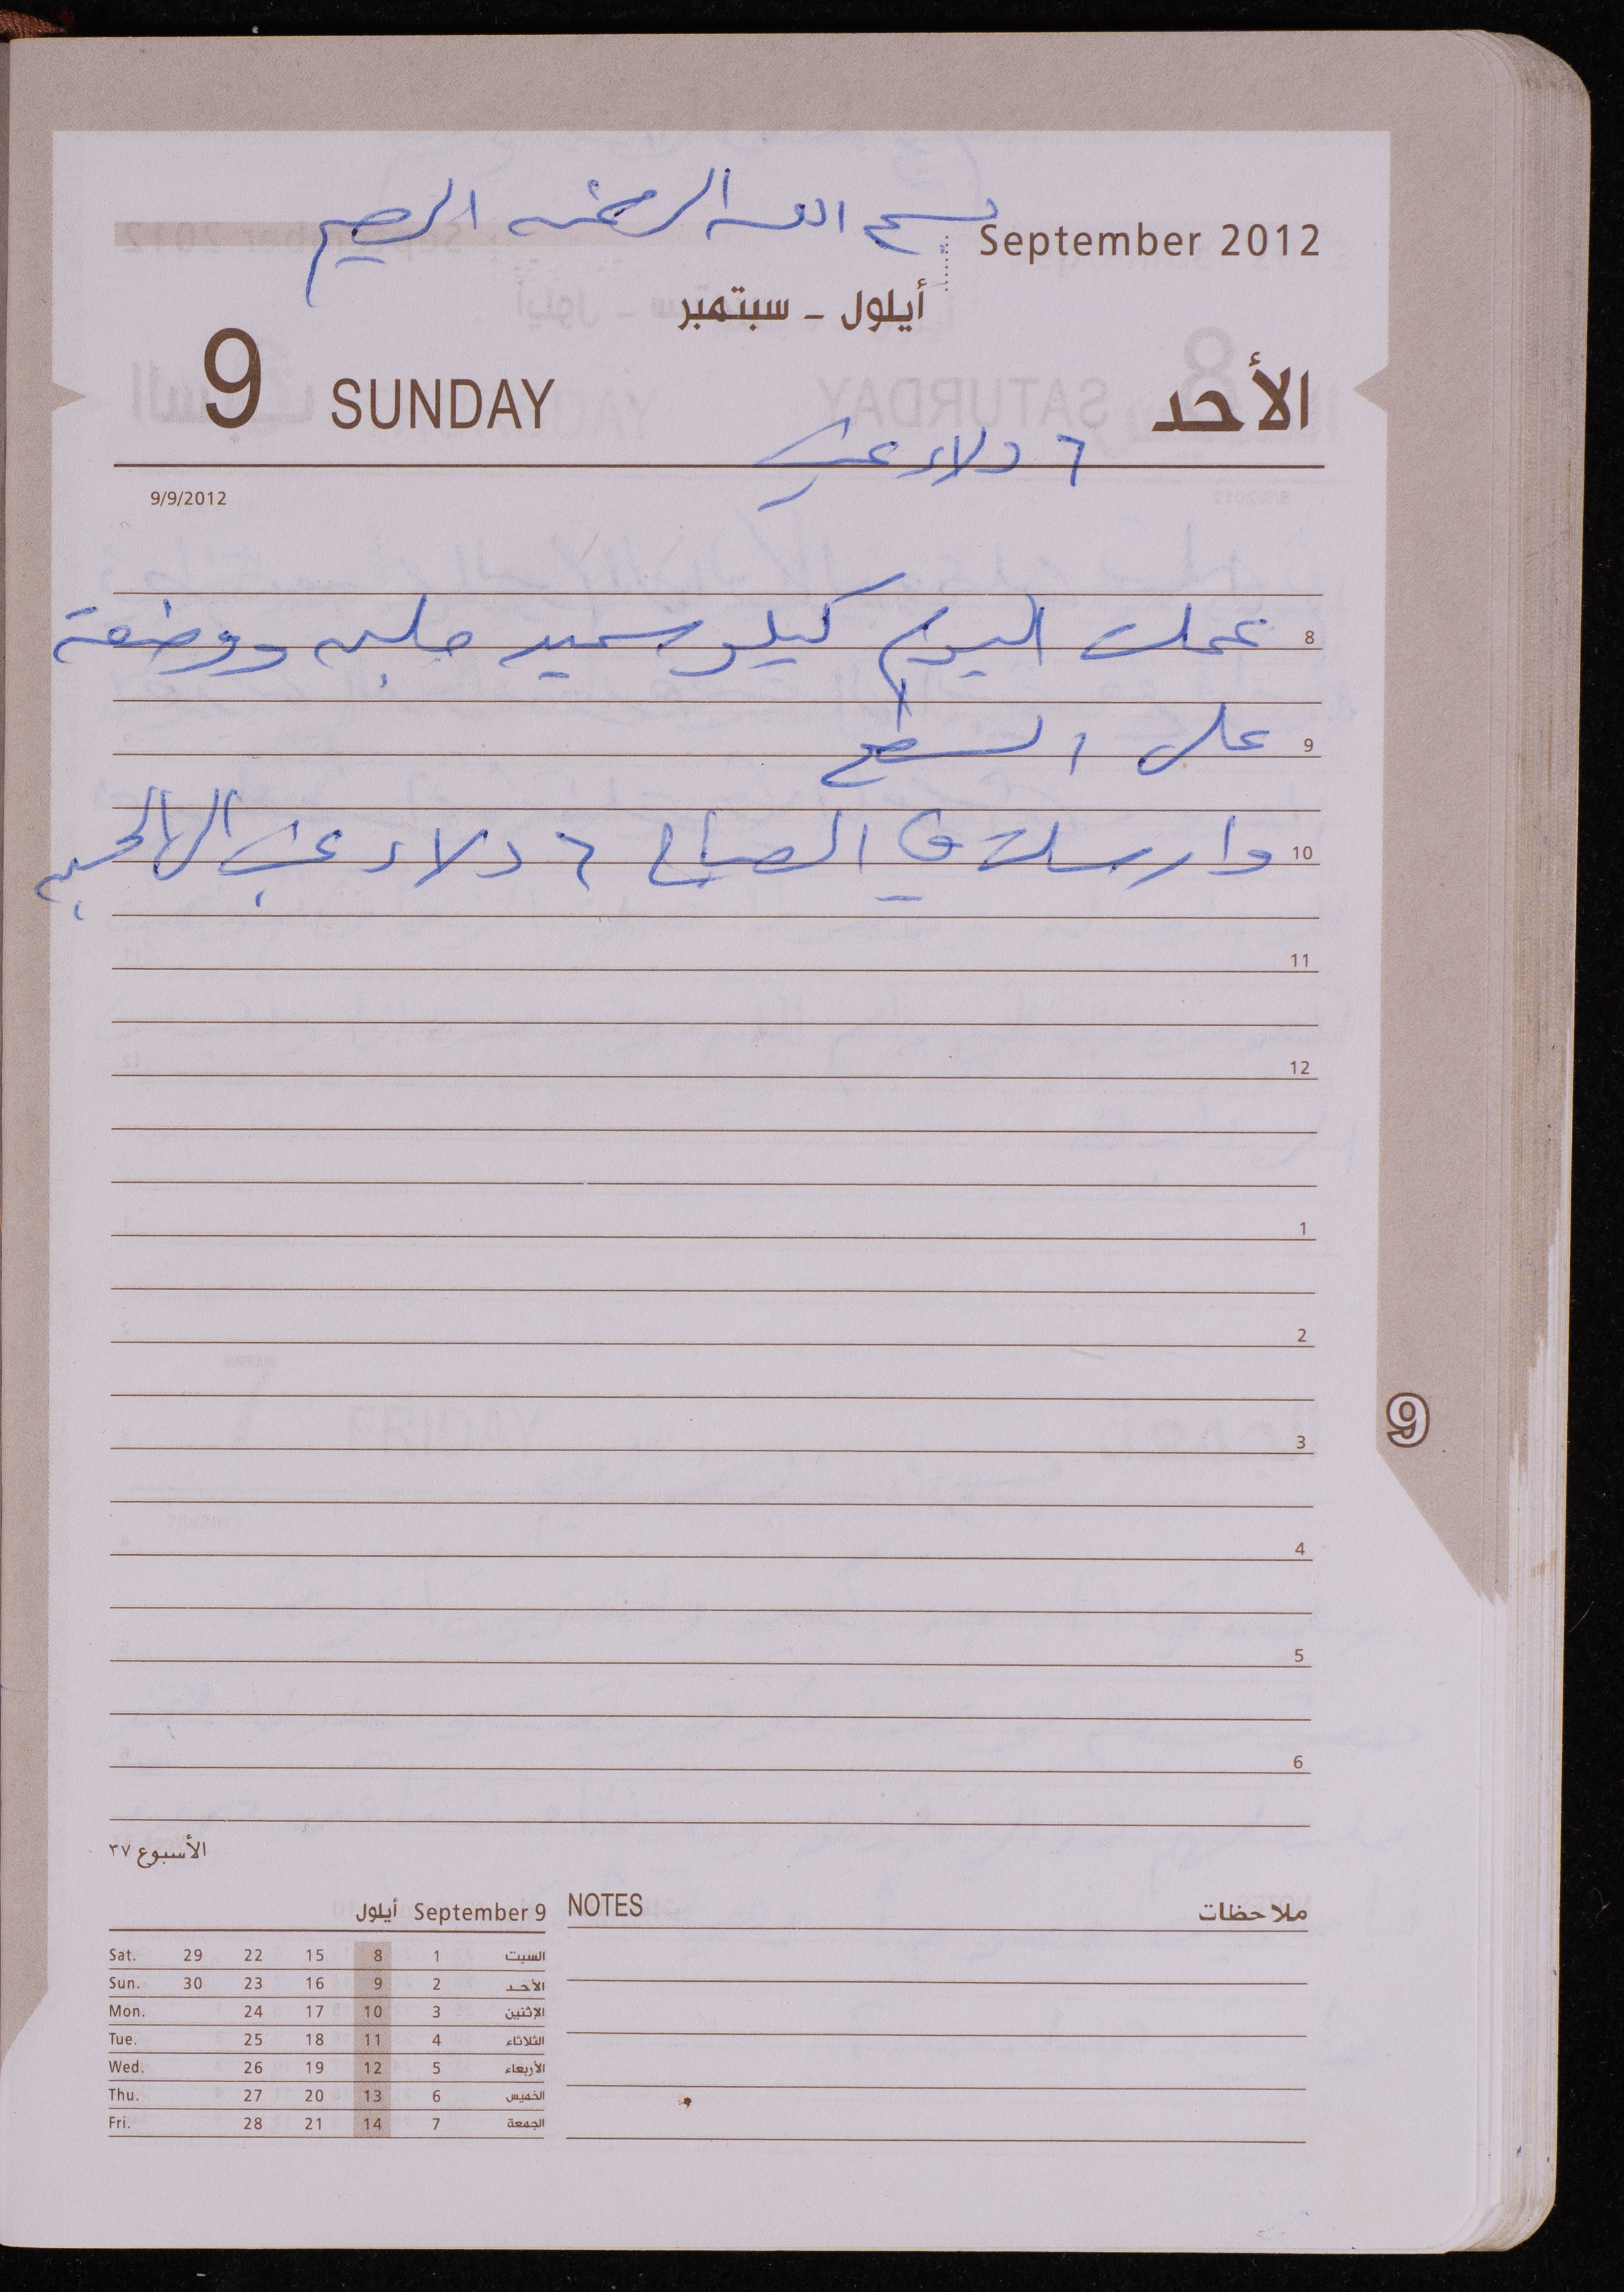 بسم الله الرحمن الرحيم
September 2012
أيلول - سبتمبر
9 SUNDAY الأحد
٦ دلاء عنب
9/9/2012
8 عملت اليوم كيلو سميد حلبه ووضعة
9 على السطح
10 وارسلت في الصباح ٦ دلاء عنب الى
11
12
1
2
3
9
4
5
6
الأسبوع ٣٧
أيلول September 9
NOTES ملاحظات
Sat. 29 22 15 8 1 السبت
Sun. 30 23 16 9 2 الأحد
Mon. 24 17 10 3 الإثنين
Tue. 25 18 11 4 الثلاثاء
Wed. 26 19 12 5 الأربعاء
Thu. 27 20 13 6 الخميس
Fri. 28 21 14 7 الجمعة